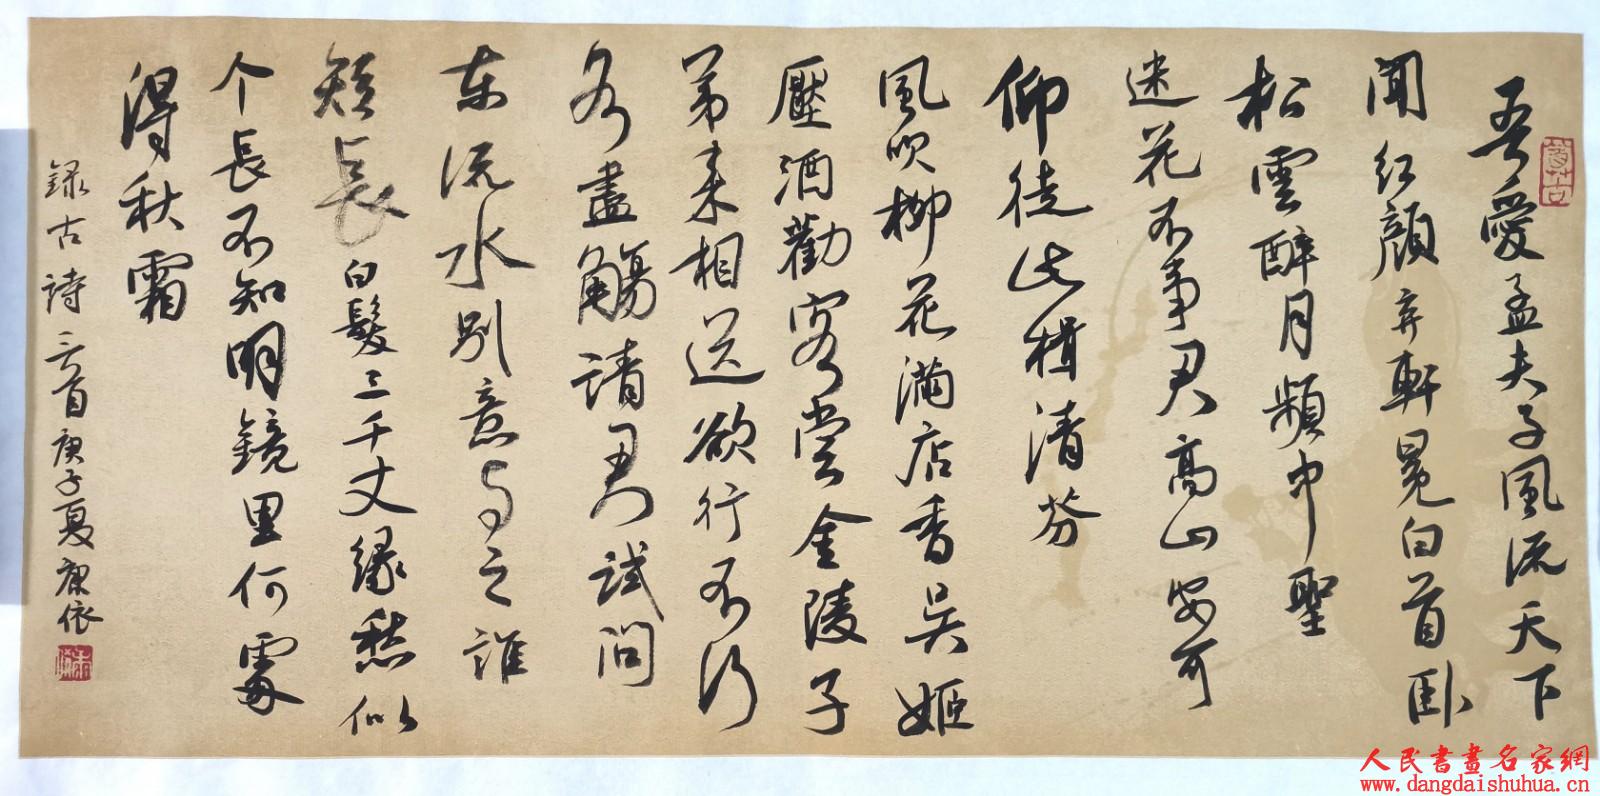 吾愛孟夫子風流天下
聞红顔弃軒冕白首卧
松雲醉月頻中聖
迷花不事君高山安可
仰徒此揖清芬
風吹柳花滿店香吴姬
壓酒勸客嘗金陵子
弟来相送欲行不行
各盡觴請君试問
东流水别意与之誰
短長白髮三千丈缘愁似
个長不知明鏡里何處
得秋霜
録古詩三首庚子夏康依
人民書畫名家網
www.dangdaishuhua.cn